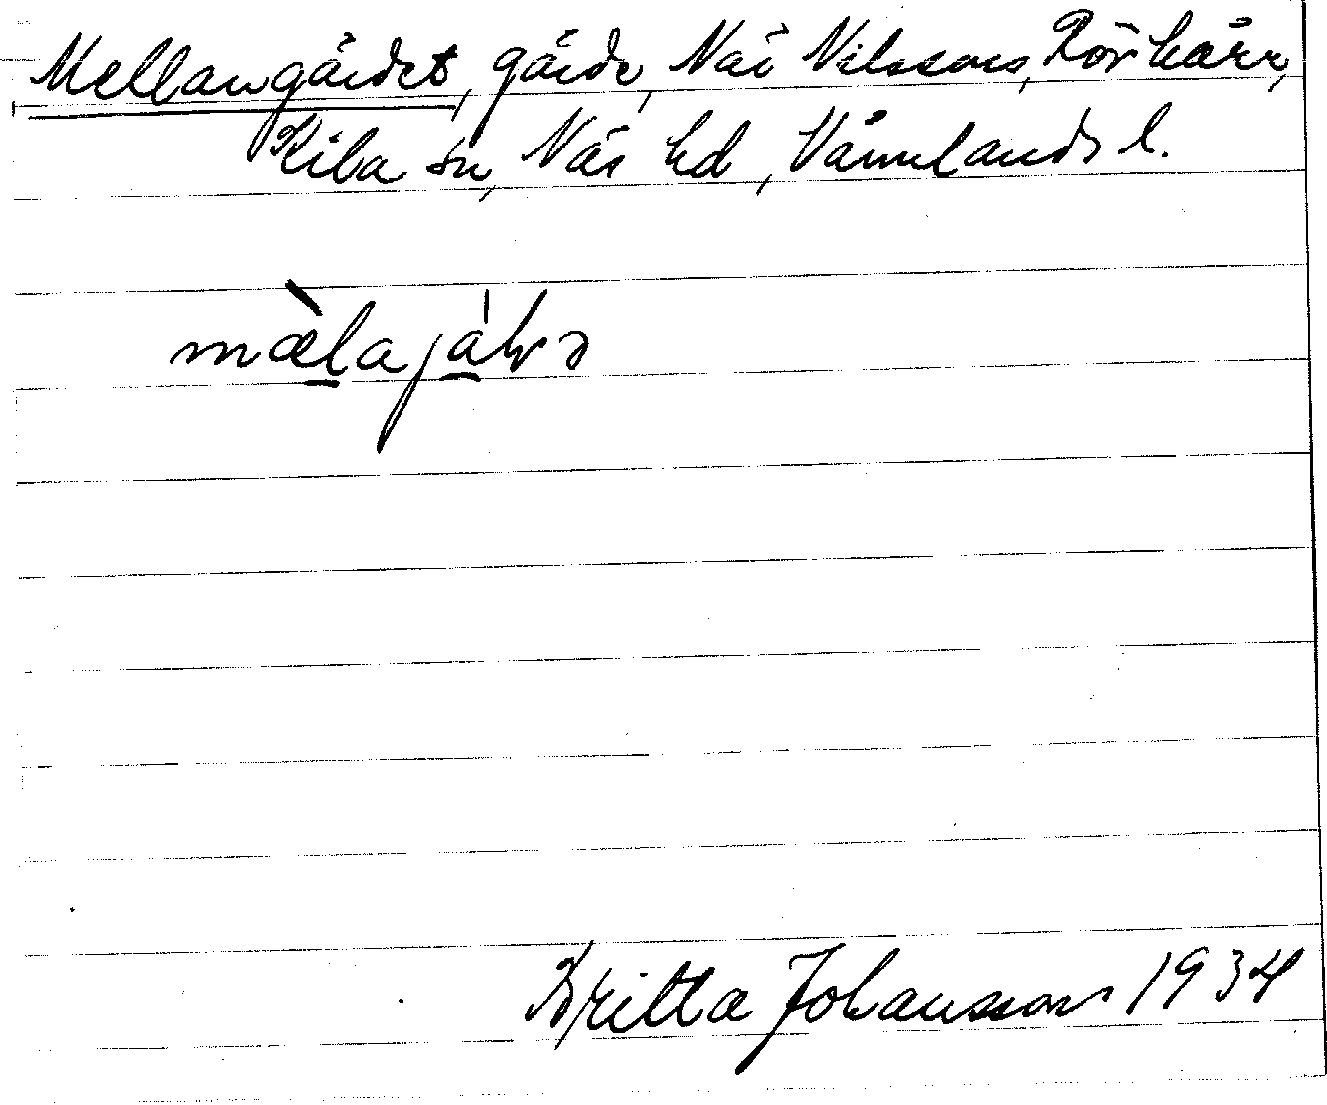 Mellangärdet, gärde, När Nilssons, Rörkärr,
Kila sn, Näs hd, Värmlands l.
mæ̀lajáḷvə
Britta Johansson 1934